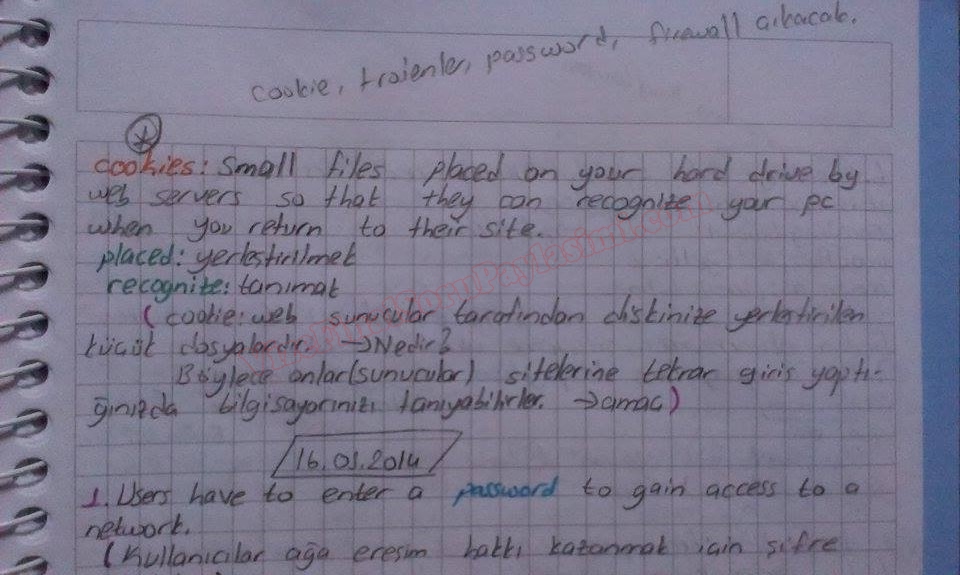 cookie, troienler, password, firewall çıkacak.
cookies: Small files placed on your hard drive by
web servers so that they can recognize your pc
when you return to their site.
placed: yerleştirilmek
recognize: tanımak
(cookie: web sunucular tarafından diskinize yerleştirilen
küçük dosyalardır. →Nedir?
Böylece onlar(sunucular) sitelerine tekrar giriş yaptı-
ğınızda bilgisayarınızı tanıyabilirler. →amaç)
16.01.2014
1. Users have to enter a password to gain access to a
network.
(Kullanıcılar ağa eresim hakkı kazanmak için şifre